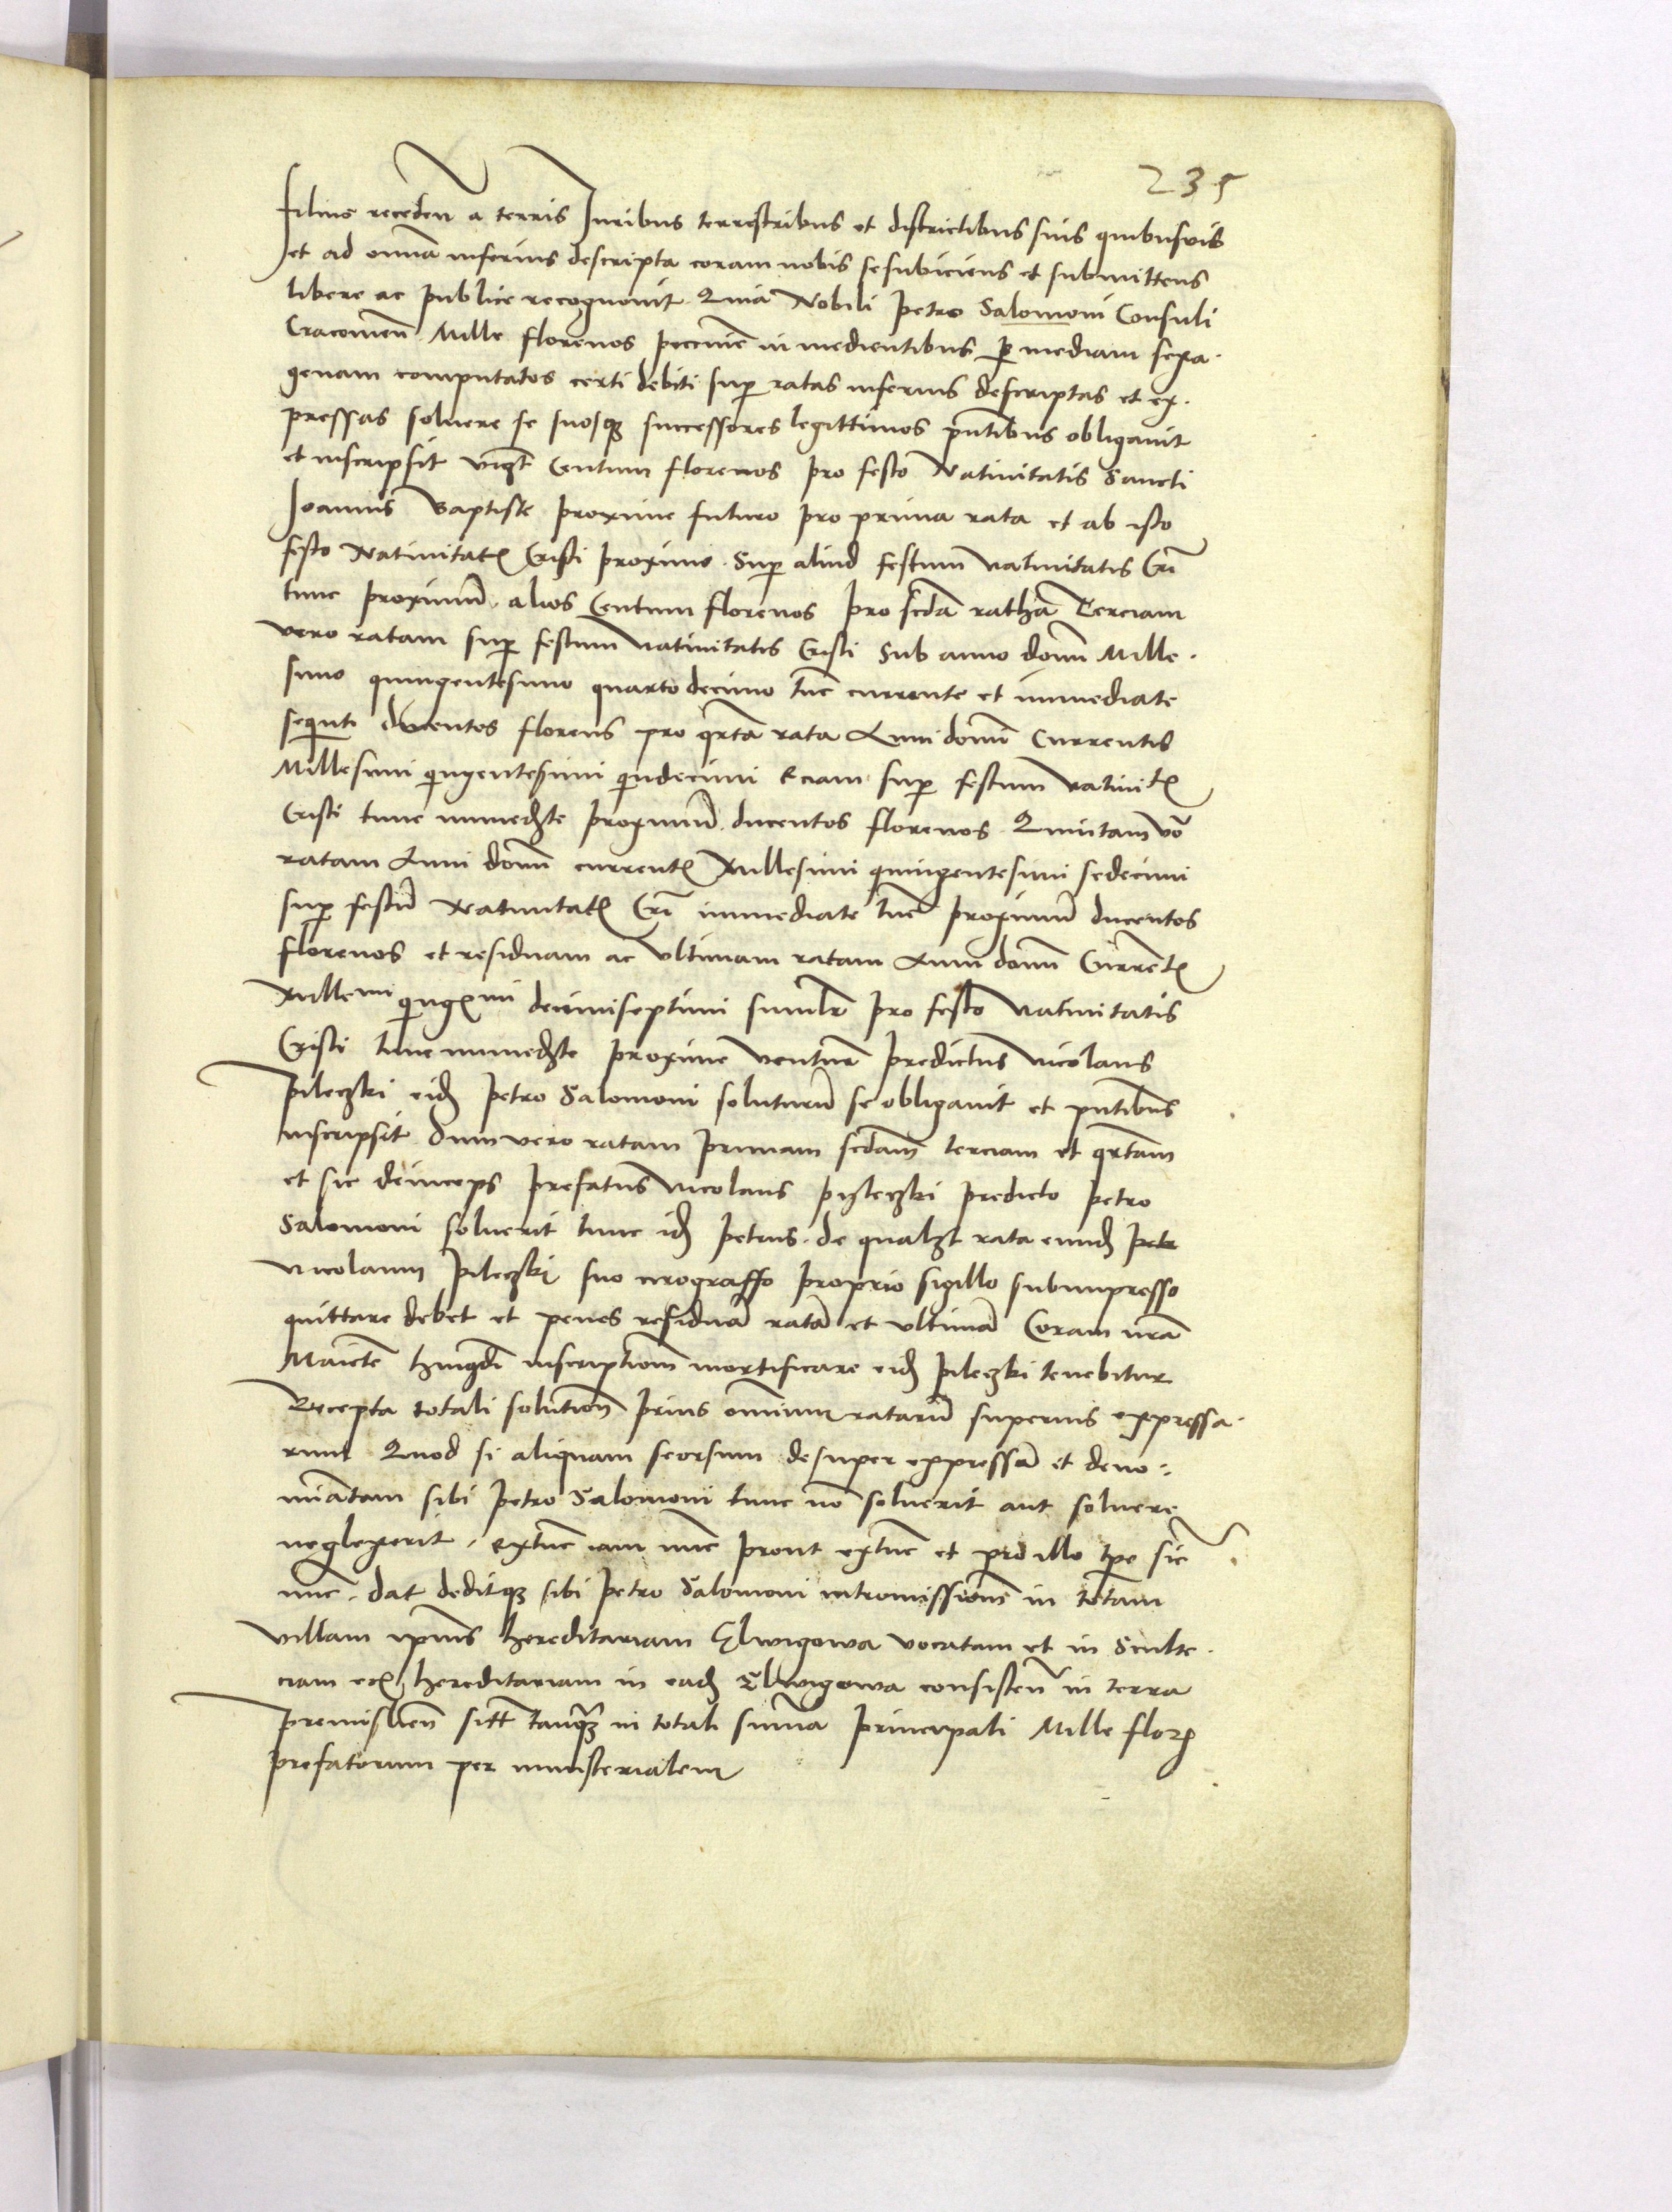 235
filius receden a terris Juribus terrestribus et districtibus suis quibusvis
et ad omnia inferius descripta coram nobis se subiiciens et submittens
libere ac publice recognovit Quia Nobili Petro Salomoni Consuli
Cracovien Mille florenos peccunie in medientibus per mediam sexa-
genam computatos certi debiti sup ratas inferius descriptas et ex-
pressas solvere se suosque successores legittimos pntibus obligavit
et inscripsit vizt Centum florenos pro festo Nativitatis Sancti
Joannis Baptiste proxime futuro pro prima rata et ab isto
festo Nativitatis Cristi proximo Sup aliud festum nativitatis Cri
tunc proximum alios Centum florenos pro scda ratha Terciam
vero ratam sup festum nativitatis Cristi Sub anno domi Mille-
simo quingentesimo quarto decimo tunc currente et immediate
sequnti ducentos florenos pro qrta rata Anni domi Currentis
Millesimi qingentesimi qindecimi Eciam sup festum nativitatis
Cristi tunc immedte proximum ducentos florenos Quintam vo
ratam Anni domi currentis Millesimi quingentesimi sedecimi
sup festum Nativitatis Cri immediate tunc proximum ducentos
florenos et residuam ac ultimam ratam Anni domi Currentis
Mille mi qinge mi decimiseptimi similr pro festo nativitatis
Cristi tunc immedte proxime ventur predictus Nicolaus
Pileczki eidem Petro Salomoni soluturum se obligavit et pntibus
inscripsit Dum vero ratam primam scdam terciam et qrtam
et sic deinceps prefatus Nicolaus Pyleczki predicto Petro
Salomoni solverit tunc idem Petrus de qualzt rata eundem Petr
Nicolaum Pileczki suo cirograffo proprio sigillo subimpresso
quittare debet et penes residua rata et ultima Coram nra
Maiete hmodi inscriptiom mortificare eidem Pileczki tenebitur
Recepta totali solution prius omnium ratarum superius expressa-
rum Quod si aliquam seorsum desuper expressa et deno-
minatam sibi Petro Salomoni tunc no solverit aut solvere
neglexerit extunc iam nunc prout extunc et pro illo tpe sic
nunc dat deditque sibi Petro Salomoni intromissionem in totam
villam ipius hereditariam Elwigowa vocatam et in Sculte-
ciam eciam hereditariam in eadem Elwigowa consisten in terra
Premislien sitt tanquam in totali summa principali Mille flor
prefatorum per ministerialem